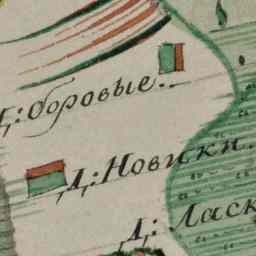 Д: Боровые.
Д: Новики.
Д: Ласк